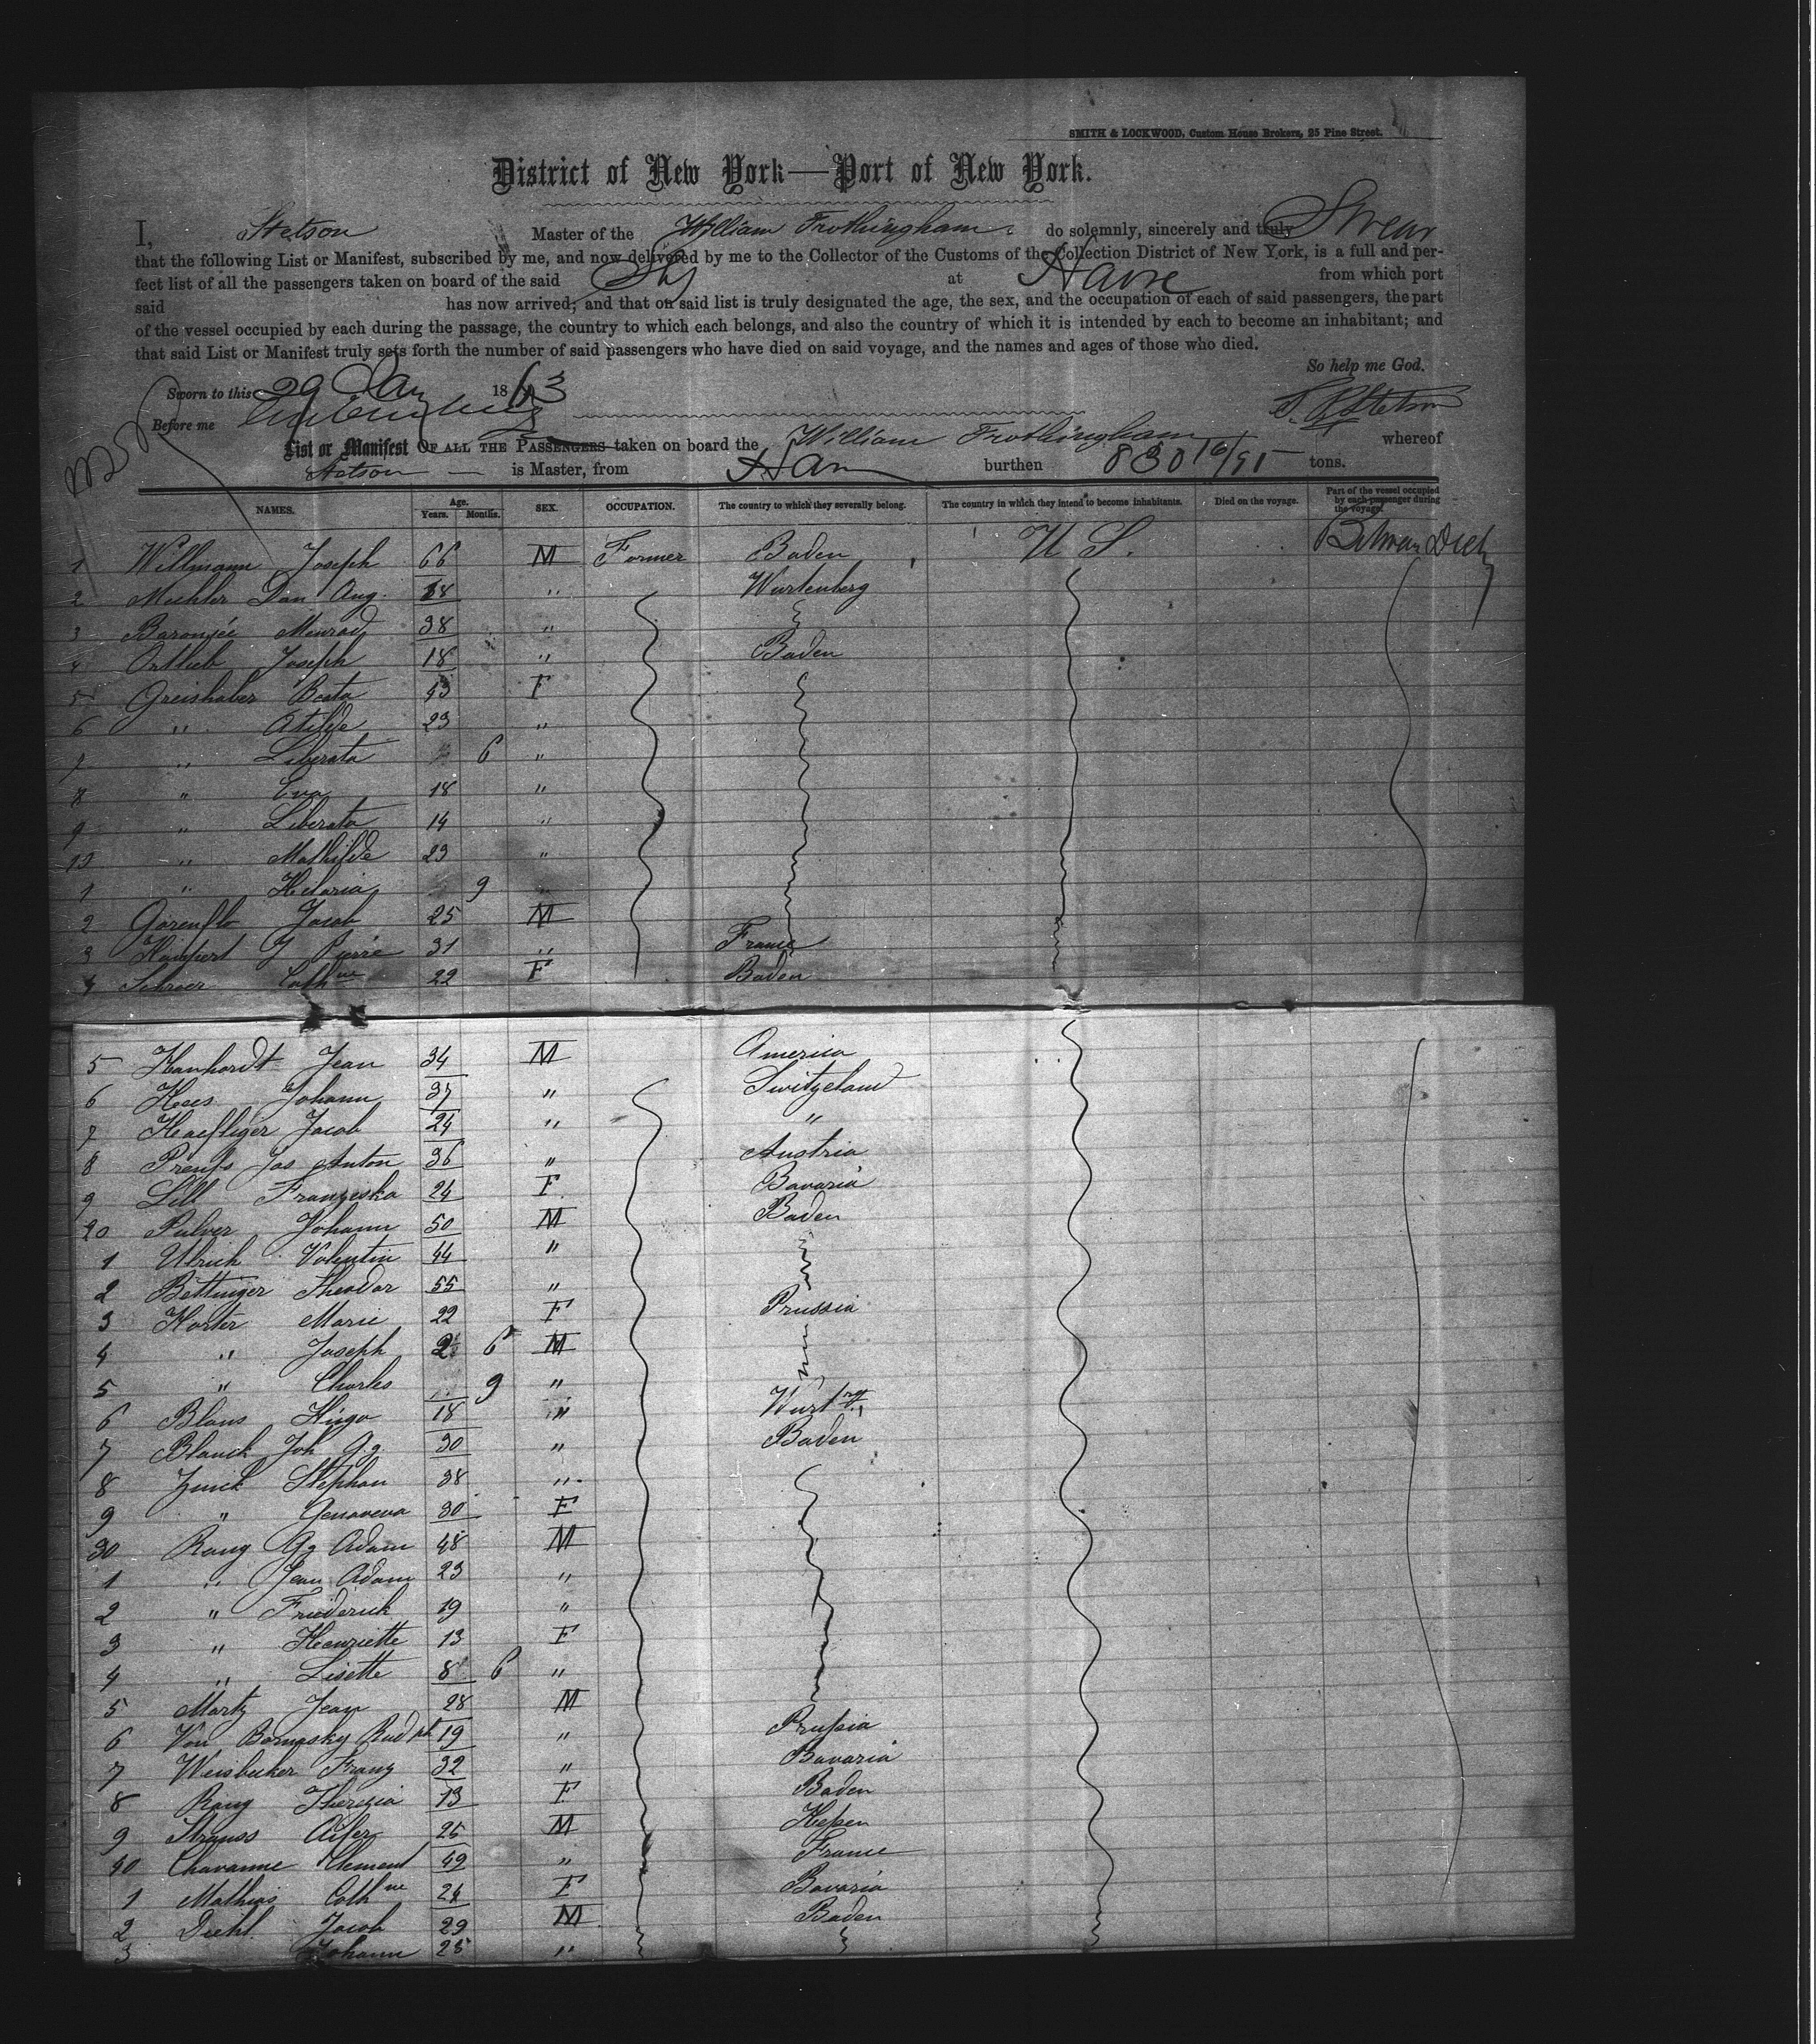 SMITH & LOCKWOOD, Custom House Brokers, 25 Pine Street.
District of New York—Port of New York.
I, Stetson Master of the William Frothingham do solemnly, sincerely and truly Swear
that the following List or Manifest, subscribed by me, and now delivered by me to the Collector of the Customs of the Collection District of New York, is a full and per-
fect list of all the passengers taken on board of the said Ship at Havre from which port
said has now arrived; and that on said list is truly designated the age, the sex, and the occupation of each of said passengers, the part
of the vessel occupied by each during the passage, the country to which each belongs, and also the country of which it is intended by each to become an inhabitant; and
that said List or Manifest truly sets forth the number of said passengers who have died on said voyage, and the names and ages of those who died.
So help me God.
Sworn to this 29 Jan 1863
Before me
Stetson
List or Manifest OF ALL THE PASSENGERS taken on board the William Frothingham whereof
Stetson is Master, from Havre burthen 830 16/95 tons.
NAMES. Age. Years. Months. SEX. OCCUPATION. The country to which they severally belong. The country in which they intend to become inhabitants. Died on the voyage. Part of the vessel occupied by each passenger during the voyage.
1 Willmann Joseph 66 M Farmer Baden U S.
2 Mechler Dan Aug. 38 " Wurtenberg
3 Menrad 38 "
4 Ortlieb Joseph 18 " Baden
5 Greishaber Beata 43 F
6 " Otilde 23 "
7 " Liberata 6 "
8 " Eva 18 "
9 " Liberata 14 "
10 " Mathilde 23 "
1 " Hilaria 9 "
2 Gorenflo Jacob 25 M
3 Pierre 31 " France
4 Schroer Cathne 22 F Baden
5 Hanhardt Jean 34 M America
6 Hees Johann 37 " Switzeland
7 Haefliger Jacob 24 " "
8 Prenfs Jos Anton 36 " Austria
9 Lill Franzeska 24 F Bavaria
20 Pulver Johann 50 M Baden
1 Ulrich Valentin 44 "
2 Bettinger Theodor 55 "
3 Horter Marie 22 F Prussia
4 " Joseph 2 6 M
5 " Charles 9 "
6 Blaus Hugo 18 " Wurtrg
7 Blanck Joh Gg. 30 " Baden
8 Zwick Stephan 38 "
9 " Genoveva 30 F
30 Rang Gg Adam 48 M
1 " Jean Adam 23 "
2 " Friederick 19 "
3 " Henriette 13 F
4 " Lisette 8 6 "
5 Martz Jean 28 M
6 Von Rudph 19 " Prussia
7 Weisbecker Franz 32 " Bavaria
8 Rang Therezia 13 F Baden
9 Strauss 25 M Hessen
40 Chavanne Clement 49 " France
1 Mathias Cathne 24 F Bavaria
2 Diehl Jacob 29 M Baden
3 Johann 25 "